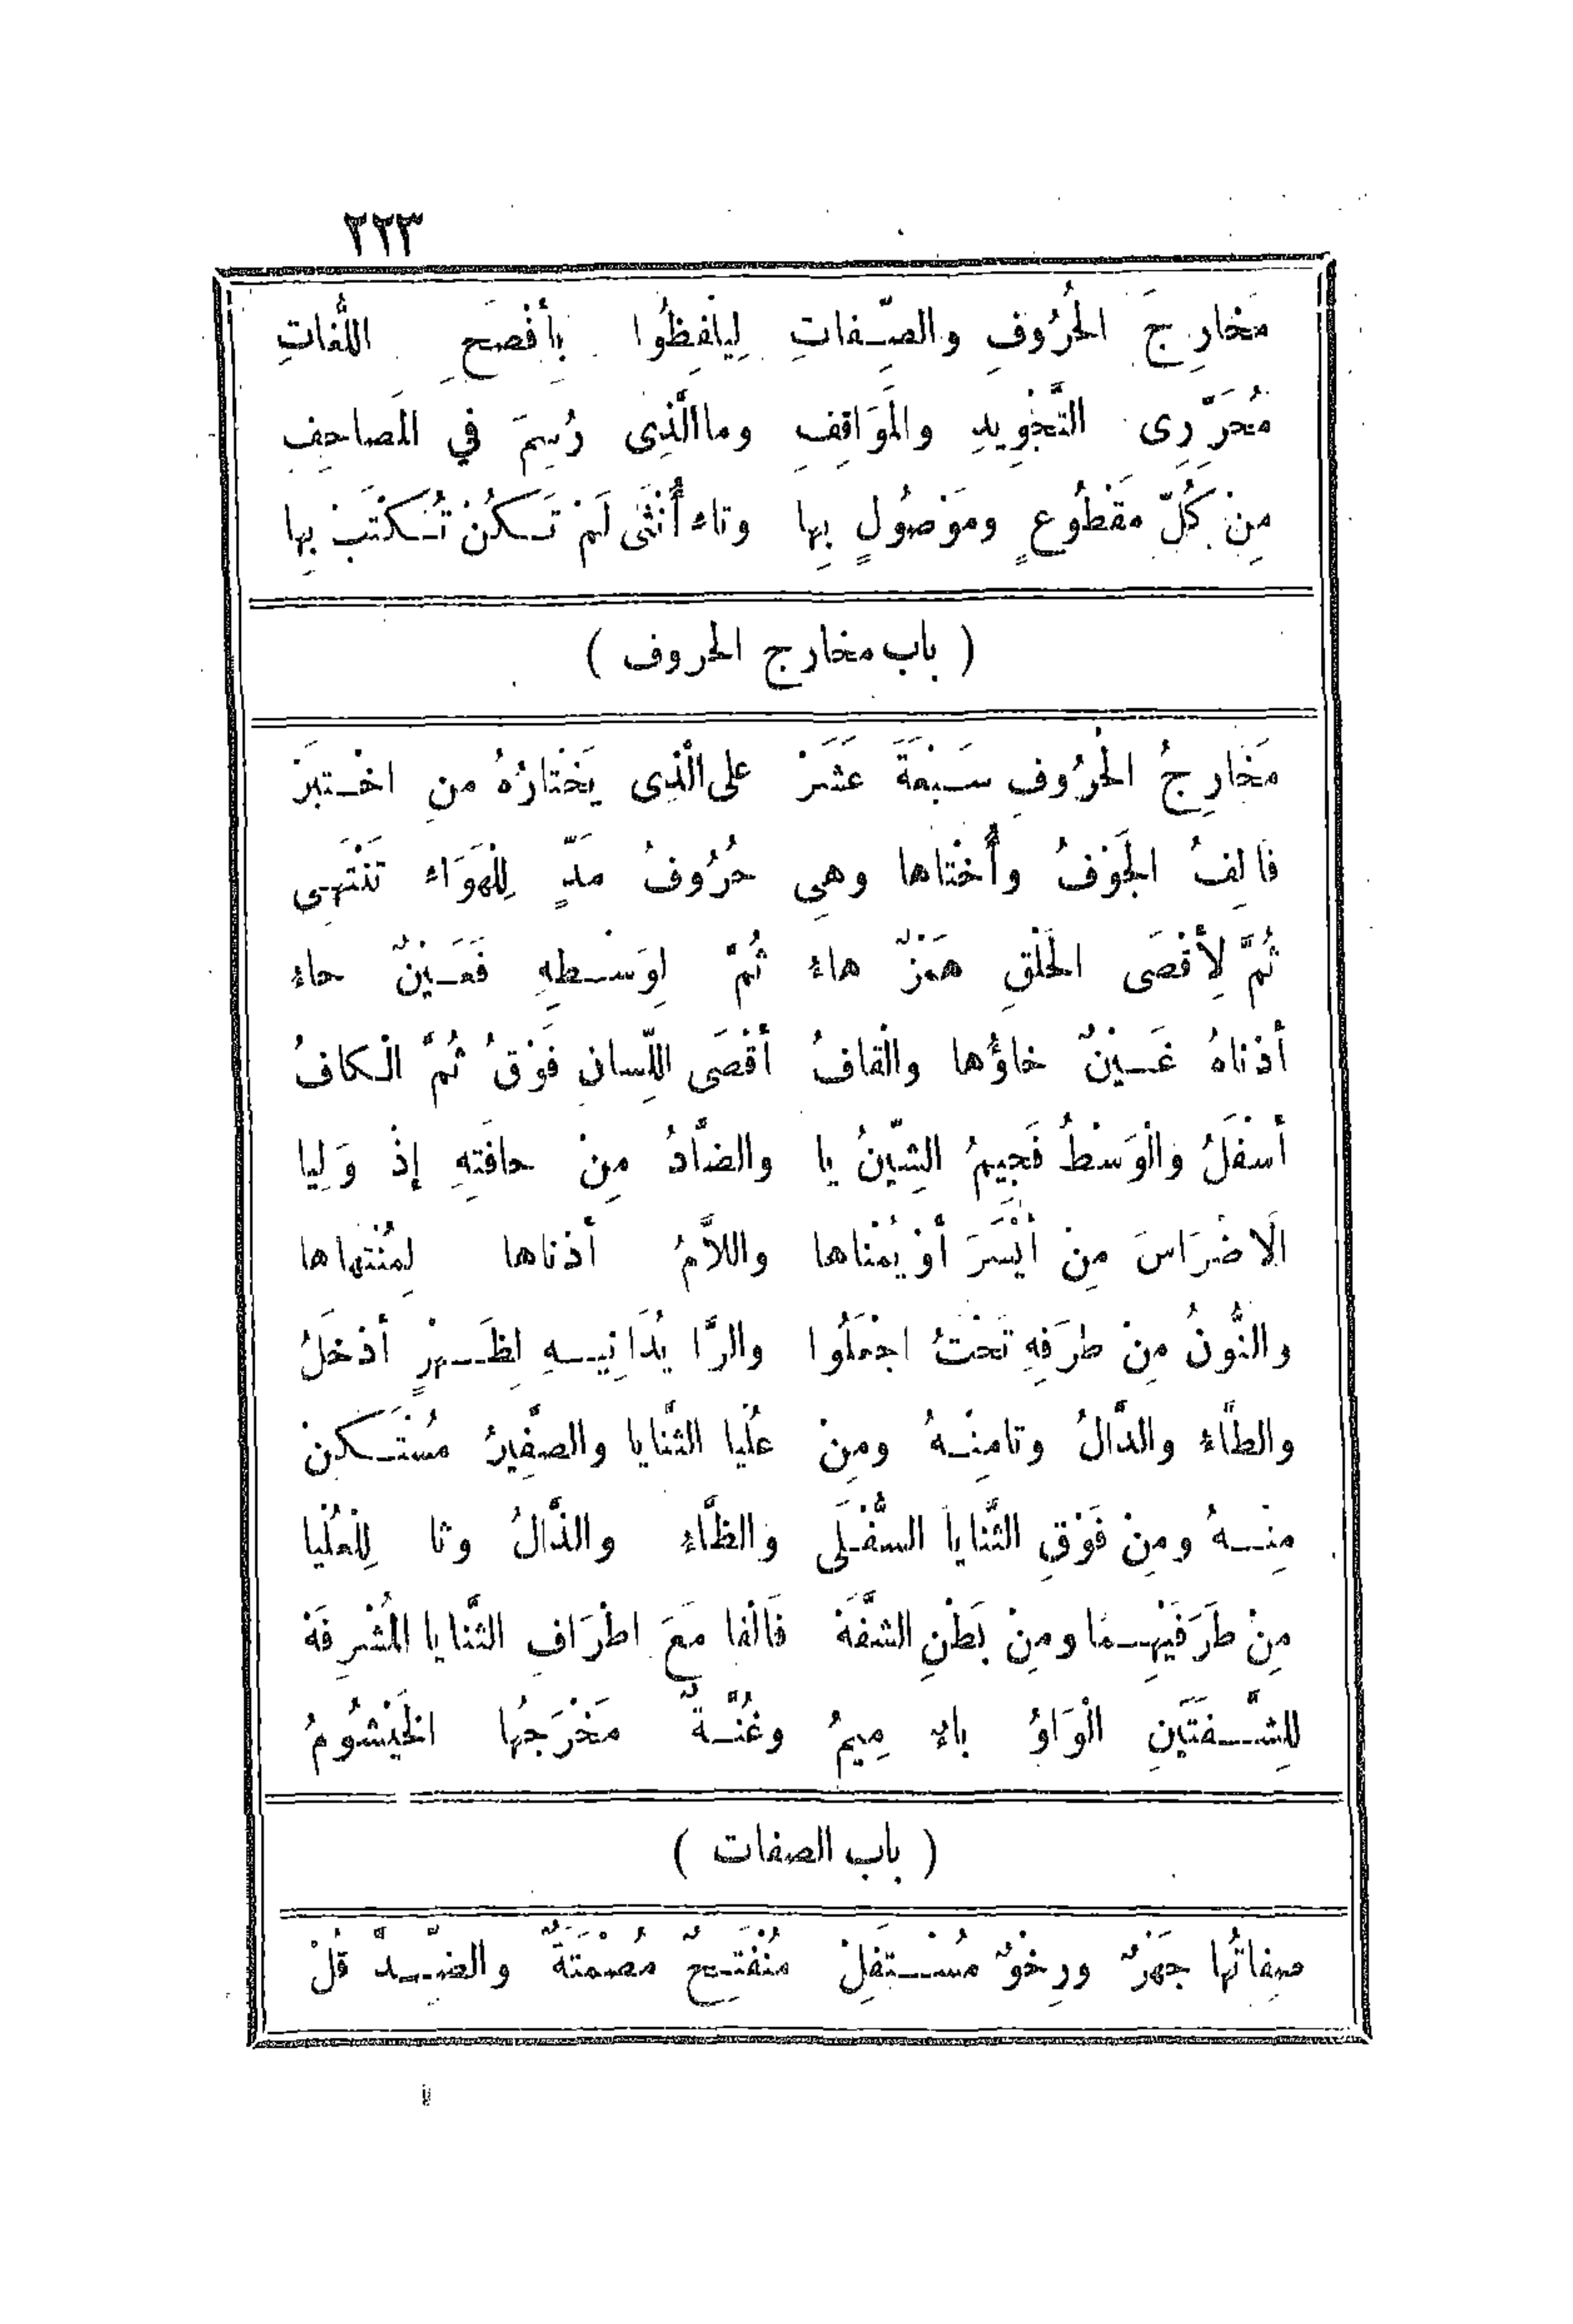 ٢٢٣
مَخارِجَ الحُرُوفِ والصِّفاتِ لِيَلْفِظُوا بِأَفْصَحِ اللُّغاتِ
مُحَرِّرِى التَّجْوِيدِ والمَوَاقِفِ وما الَّذِى رُسِمَ في المَصاحِفِ
مِنْ كُلِّ مَقْطُوعٍ ومَوْصُولٍ بِها وتاء أُنْثَى لَمْ تَكُنْ تُكْتَبْ بِها
( باب مخارج الحروف )
مَخَارِجُ الْحُرُوفِ سَبْعَةَ عَشَرْ على الَّذِى يَخْتارُهُ منِ اخْتبَرْ
فَالِفُ الجَوْفُ وأُخْتاها وهِي حُرُوفُ مَدٍّ لِلْهَوَاء تَنْتَهِى
ثُمَّ لِأَقْصَى الحَلْقِ هَمْزٌ هاءُ ثُمَّ لِوَسْطِهِ فَعَيْنٌ حاء
أدْناهُ غَيْنٌ خاؤُها والْقافُ أقْصَى اللِّسانِ فَوْقُ ثُمَّ الْكافُ
أسْفَلُ وَالْوَسْطُ فَجِيمُ الشِّينُ يا والضَّادُ مِنْ حافَتِهِ إذْ وَلِيا
الَاضْرَاسَ مِنْ أَيْسَرَ أَوْ يُمْناها واللَّامُ أدْناها لِمُنْتهاها
والنُّونُ مِنْ طرَفِهِ تَحْتُ اجْعَلُوا والرَّا يُدَانِيهِ لِظَهْرٍ أدْخَلُ
والطَّاءُ والدَّالُ وتا مِنْهُ ومِنْ عُلْيا الثَّنايا والصَّفِيرُ مُسْتَكِنْ
مِنْهُ ومِنْ فَوْقِ الثَّنايا السُّفْلَى والظَّاءُ والذَّالُ وثا لِلْعُلْيا
مِنْ طَرَفَيْهِما ومِنْ بَطْنِ الشَّفَهْ فَالْفا مَعَ اطْرَافِ الثَّنايا المُشْرِفَهْ
لِلشَّفَتَيَنِ الْوَاوُ باءٌ مِيمُ وغُنَّةٌ مَخْرَجُها الخَيْشُومُ
( باب الصفات )
صِفاتُها جَهْرٌ ورِخْوٌ مُسْتَفِلْ مُنْفَتِحٌ مُصْمَتَةٌ والضِّدَّ قُلْ